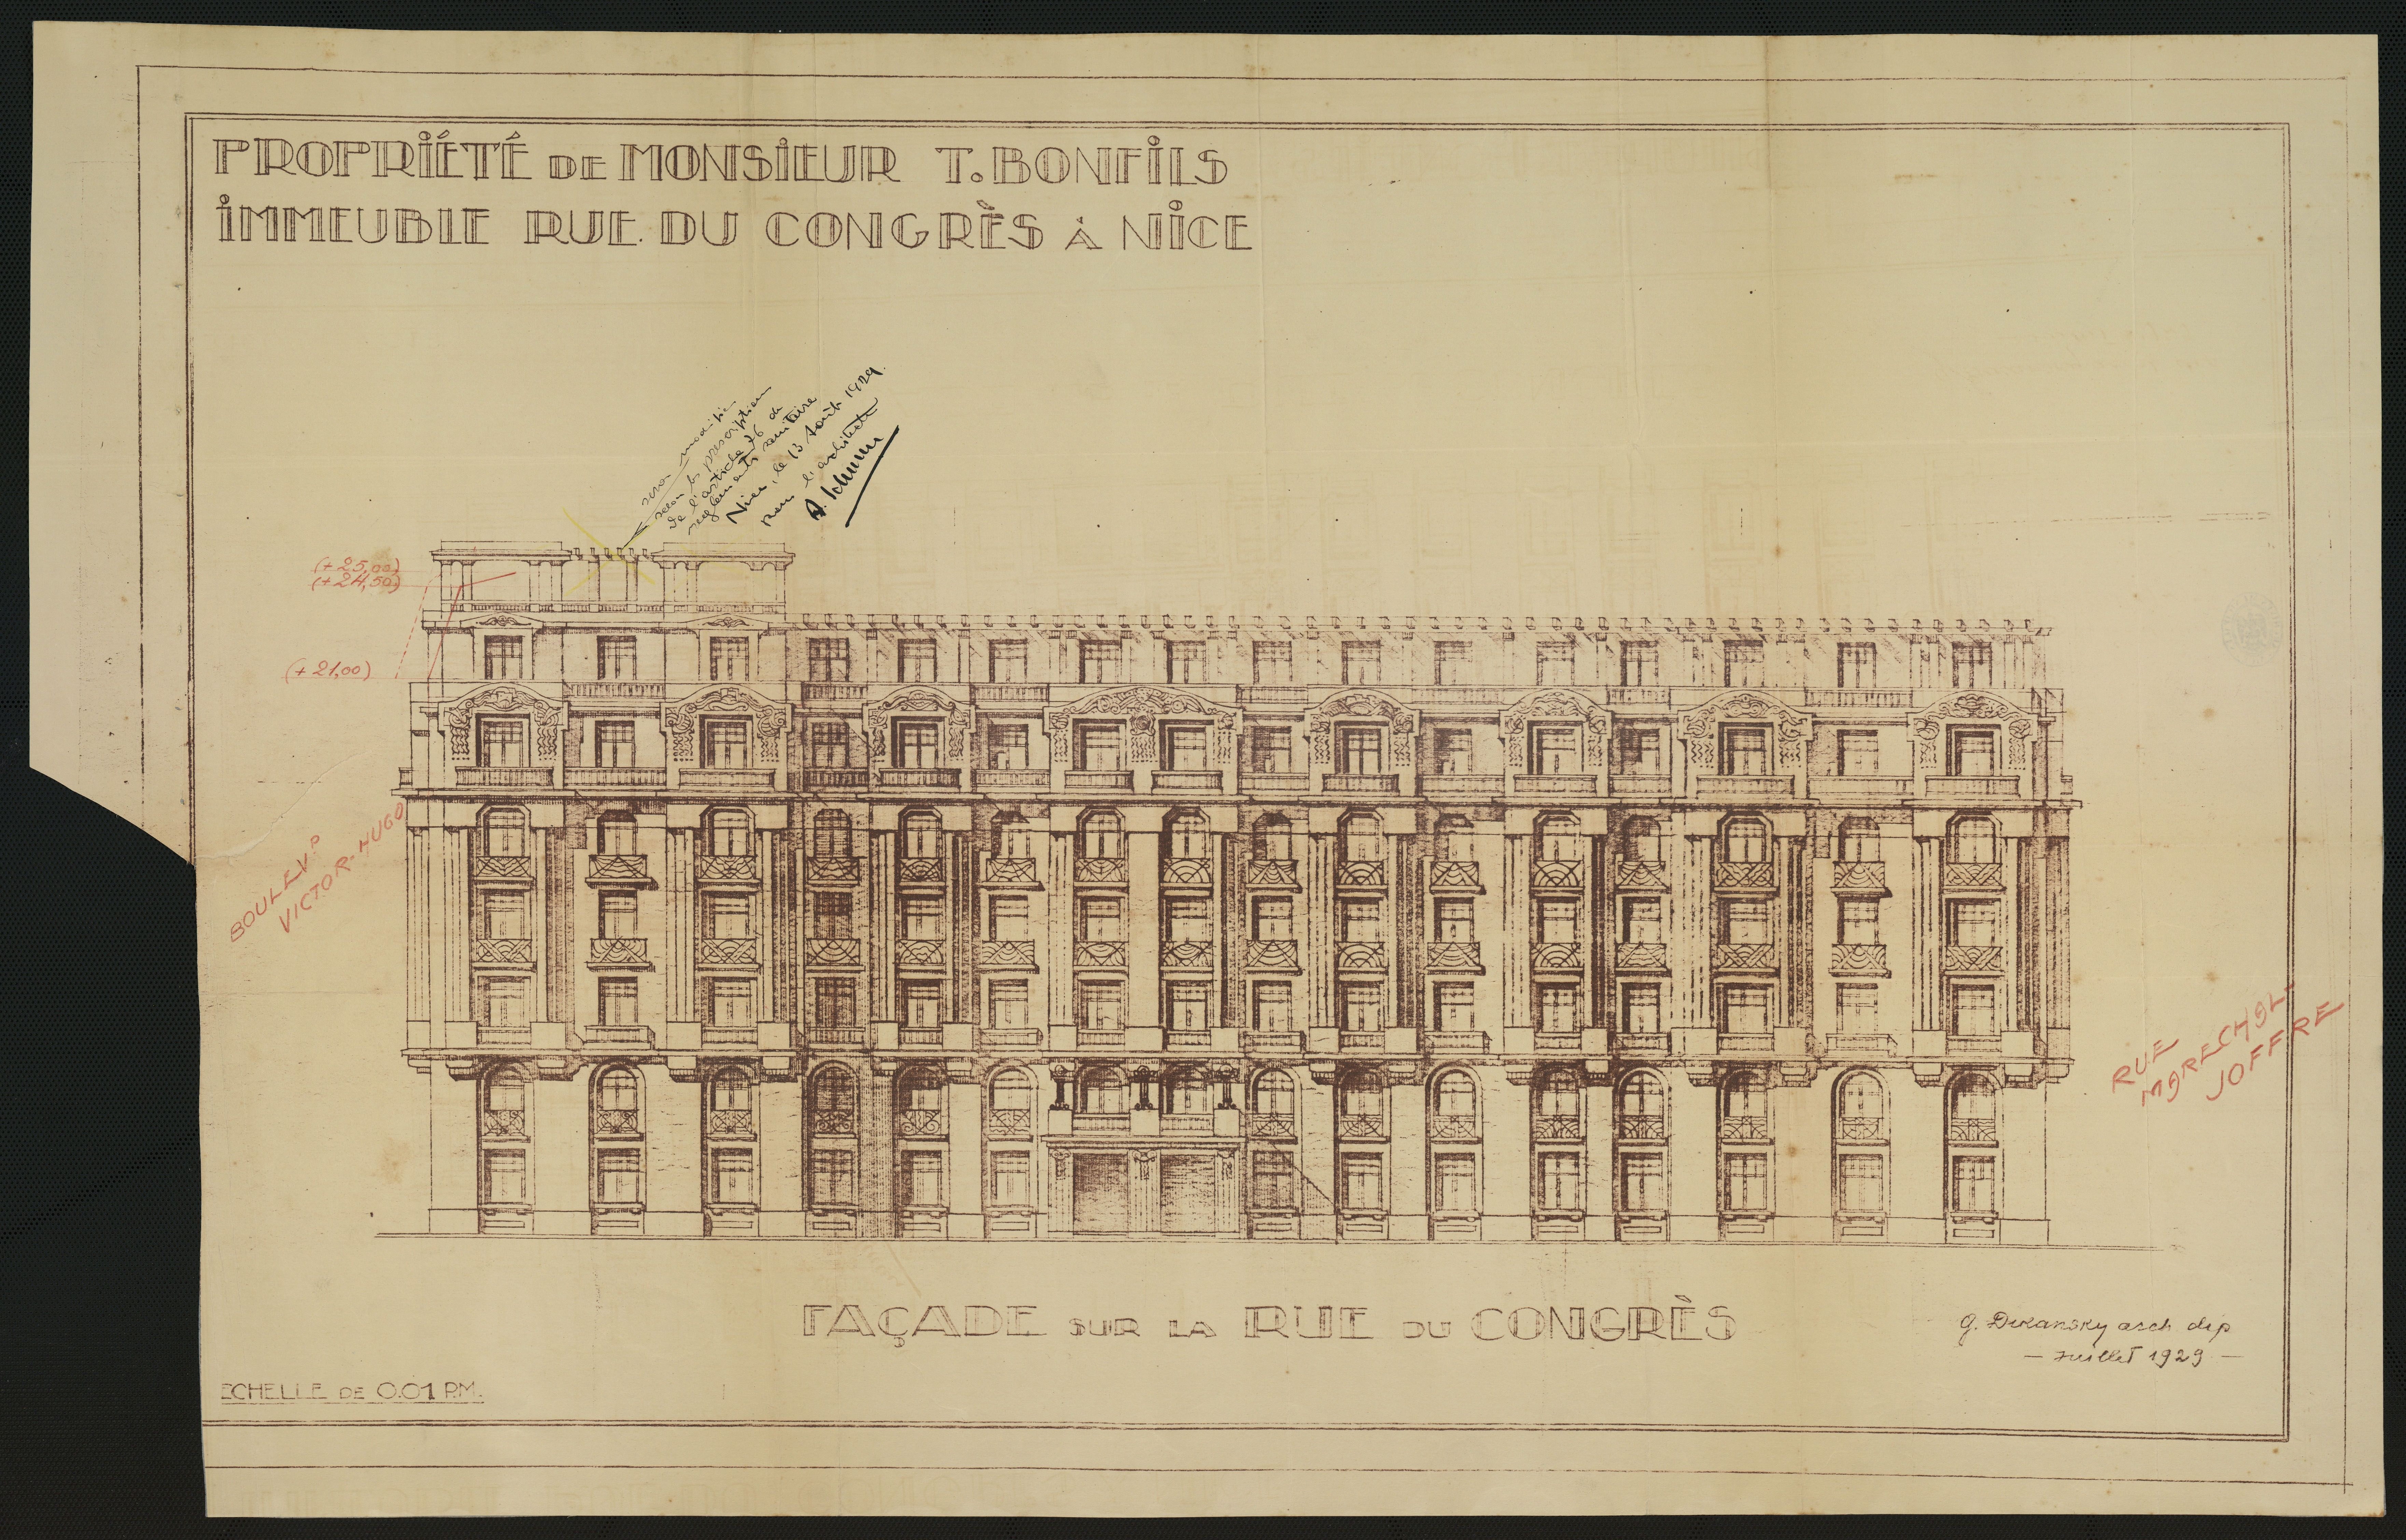 PROPRIÉTÉ DE MONSIEUR T. BONFILS
IMMEUBLE RUE DU CONGRÈS À NICE
sera modifié
selon les prescriptions
de l'article 76 du
règlement sanitaire
Nice, le 13 Août 1929.
Pour l'architecte
(+25,00)
(+24,50)
(+21,00)
BOULEVD
VICTOR-HUGO
RUE
MARECHAL-
JOFFRE
FAÇADE SUR LA RUE DU CONGRÈS
G. Dikansky arch dip
— Juillet 1929 —
ECHELLE DE 0.01 P.M.